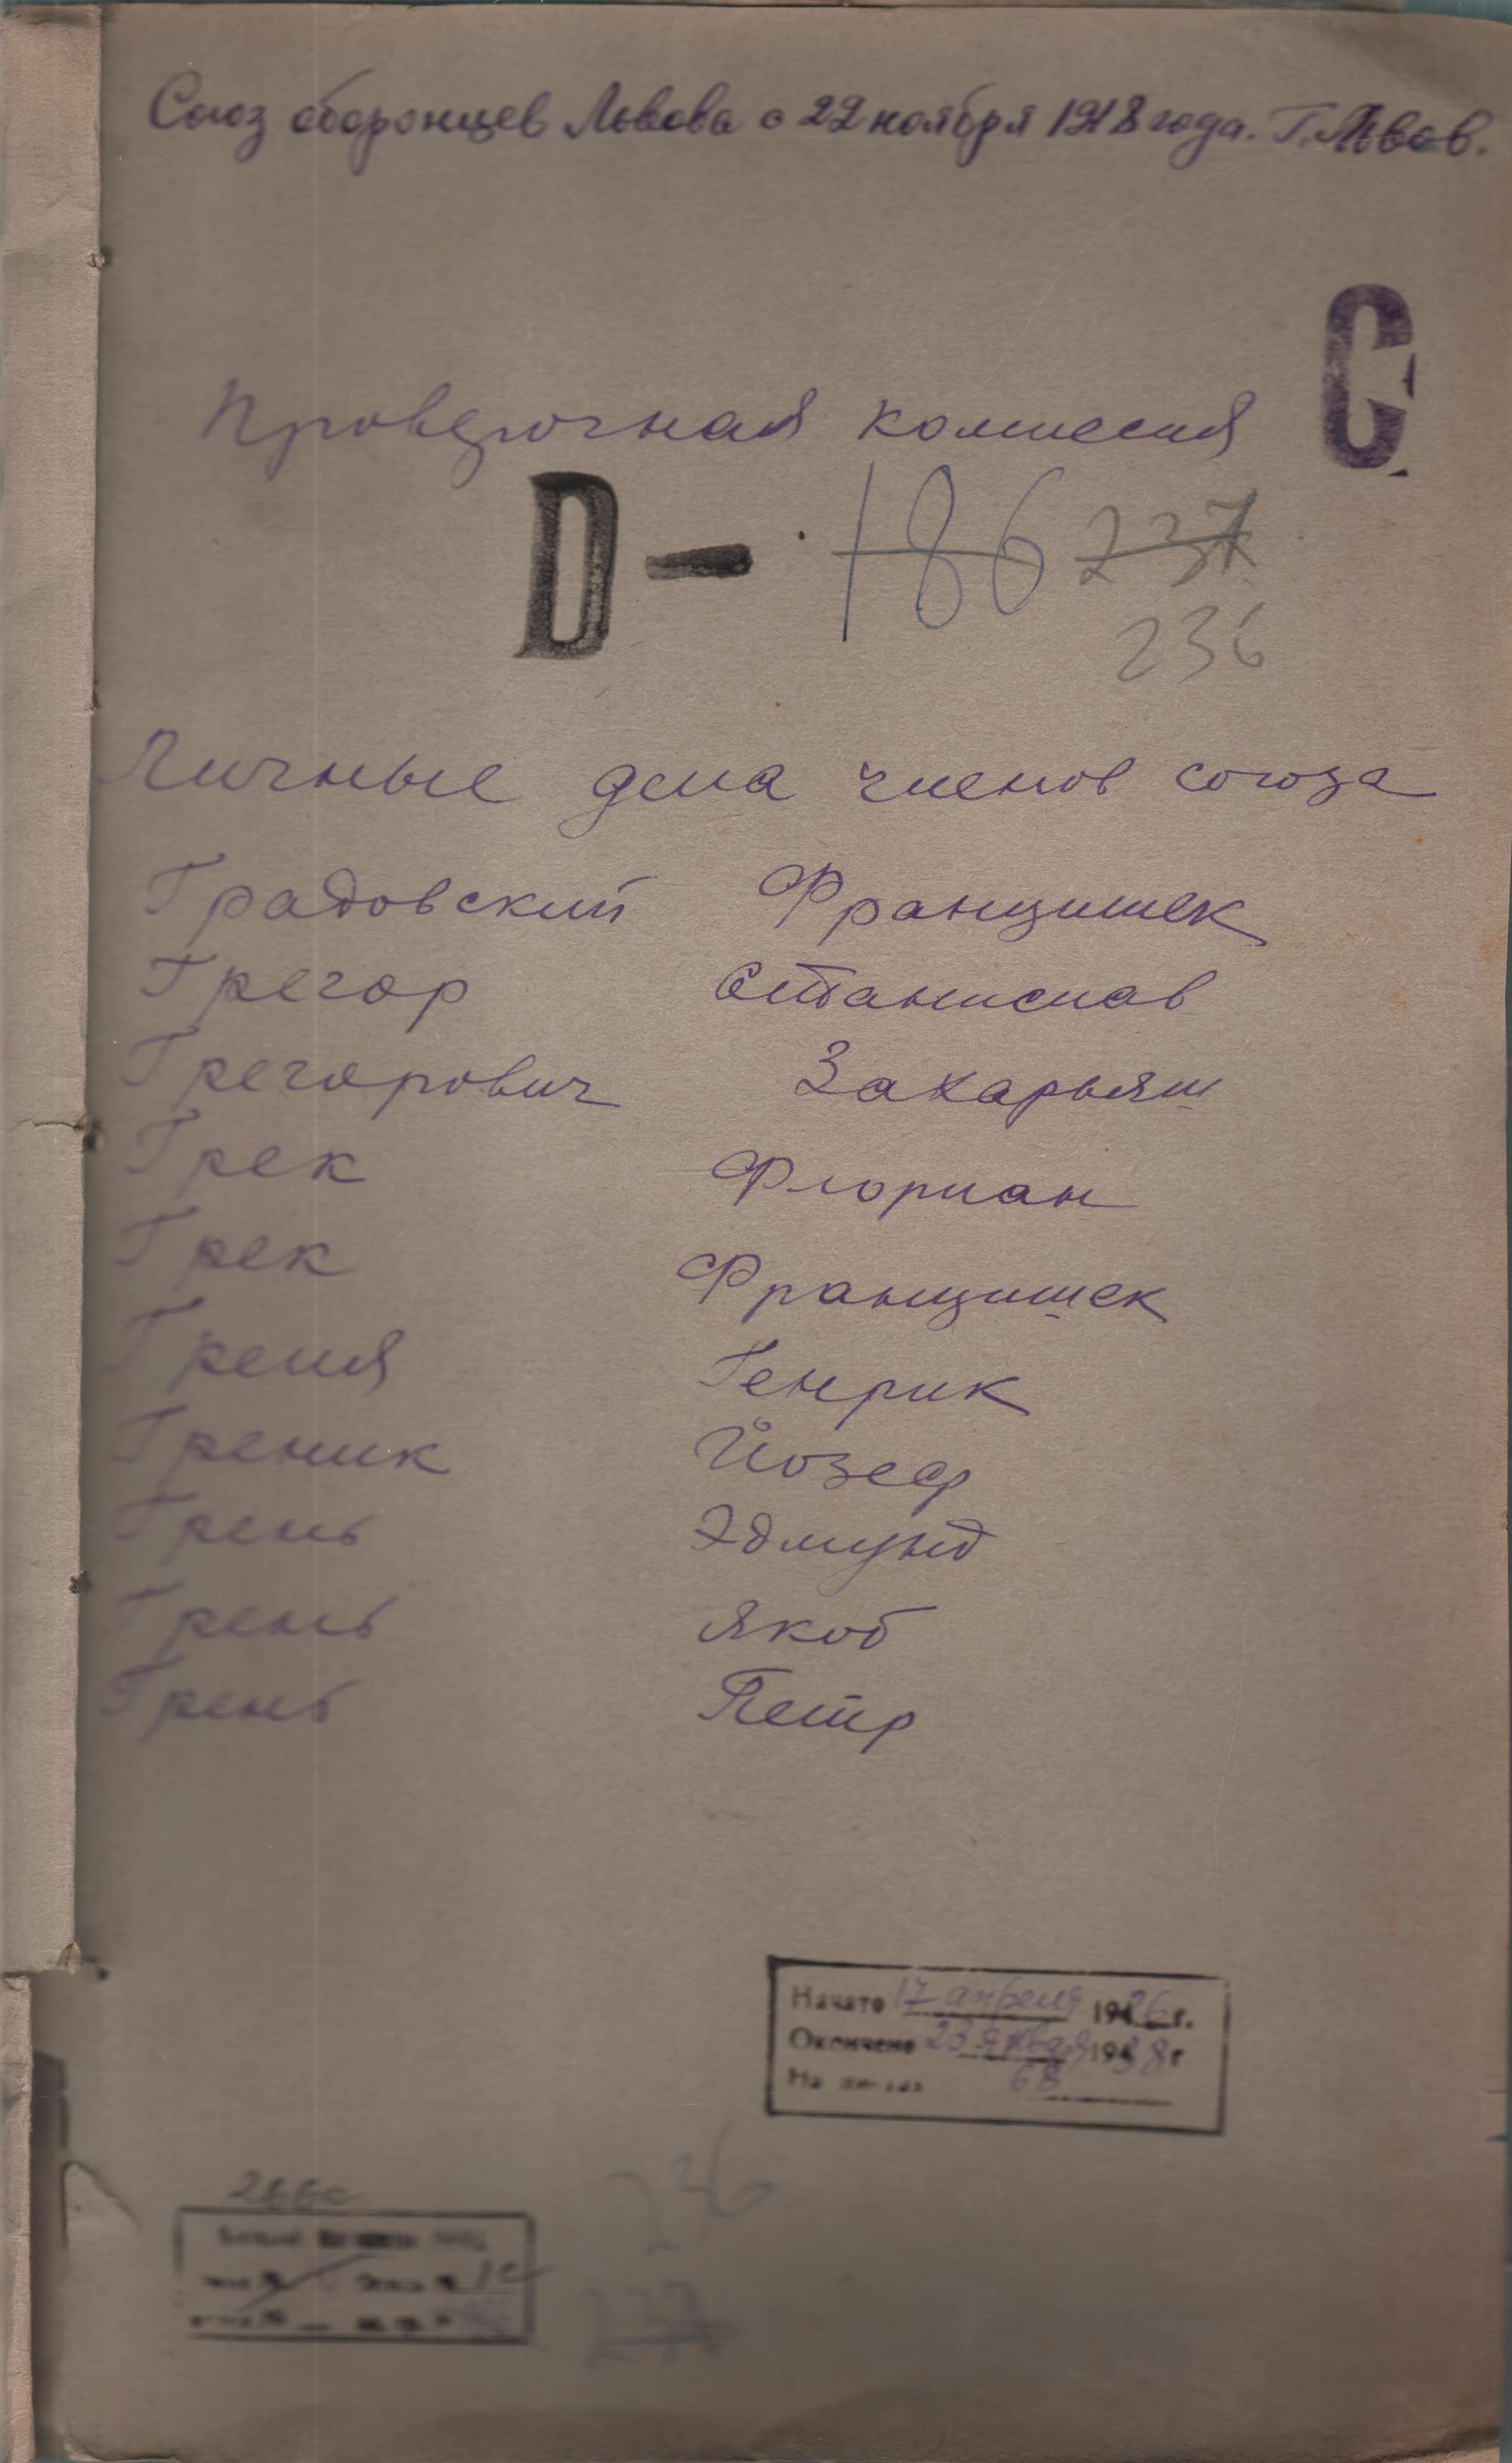 Союз оборонцев Львова с 22 ноября 1918 года. Г. Львов.
С
Проверочная комиссия
D — 186 237
236
Личные дела членов союза
Градовский Францишек
Грегор Станислав
Грегорович Захарьяш
Грек Флориан
Грек Францишек
Греля Генрик
Греник Йозеф
Грень Эдмунд
Грень Якоб
Грень Петр
Начато 17 апреля 1936 г.
Окончено 23 января 1938 г
На листах 68
236
266с
1с
237